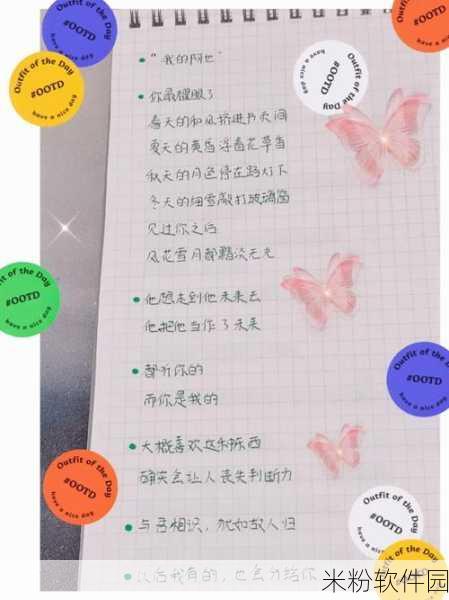 Outfit of the Day
#OOTD
have a nice day
Outfit of the Day
#OOTD
have a nice day
#OOTD
have a nice day
Outfit of the Day
#OOTD
have a nice day
“我的阿也”
你最耀眼了
春天的和风挤进书页间
夏天的黄昏浮着花草香
秋天的月色停在路灯下
冬天的细雪敲打玻璃窗
见过你之后
风花雪月都黯淡无光
Outfit of the Day
#OOTD
have a nice day
他想走到他未来去
他把他当作了未来
都听你的
而你是我的
Outfit of the Day
#OOTD
have a nice day
大概喜欢这东西
确实会让人丧失判断力
Outfit of the Day
#OOTD
have a nice day
与君相识，犹如故人归
Outfit of the Day
#OOTD
以后我有的，也会分给你
Outfit of the Day
米粉软件园